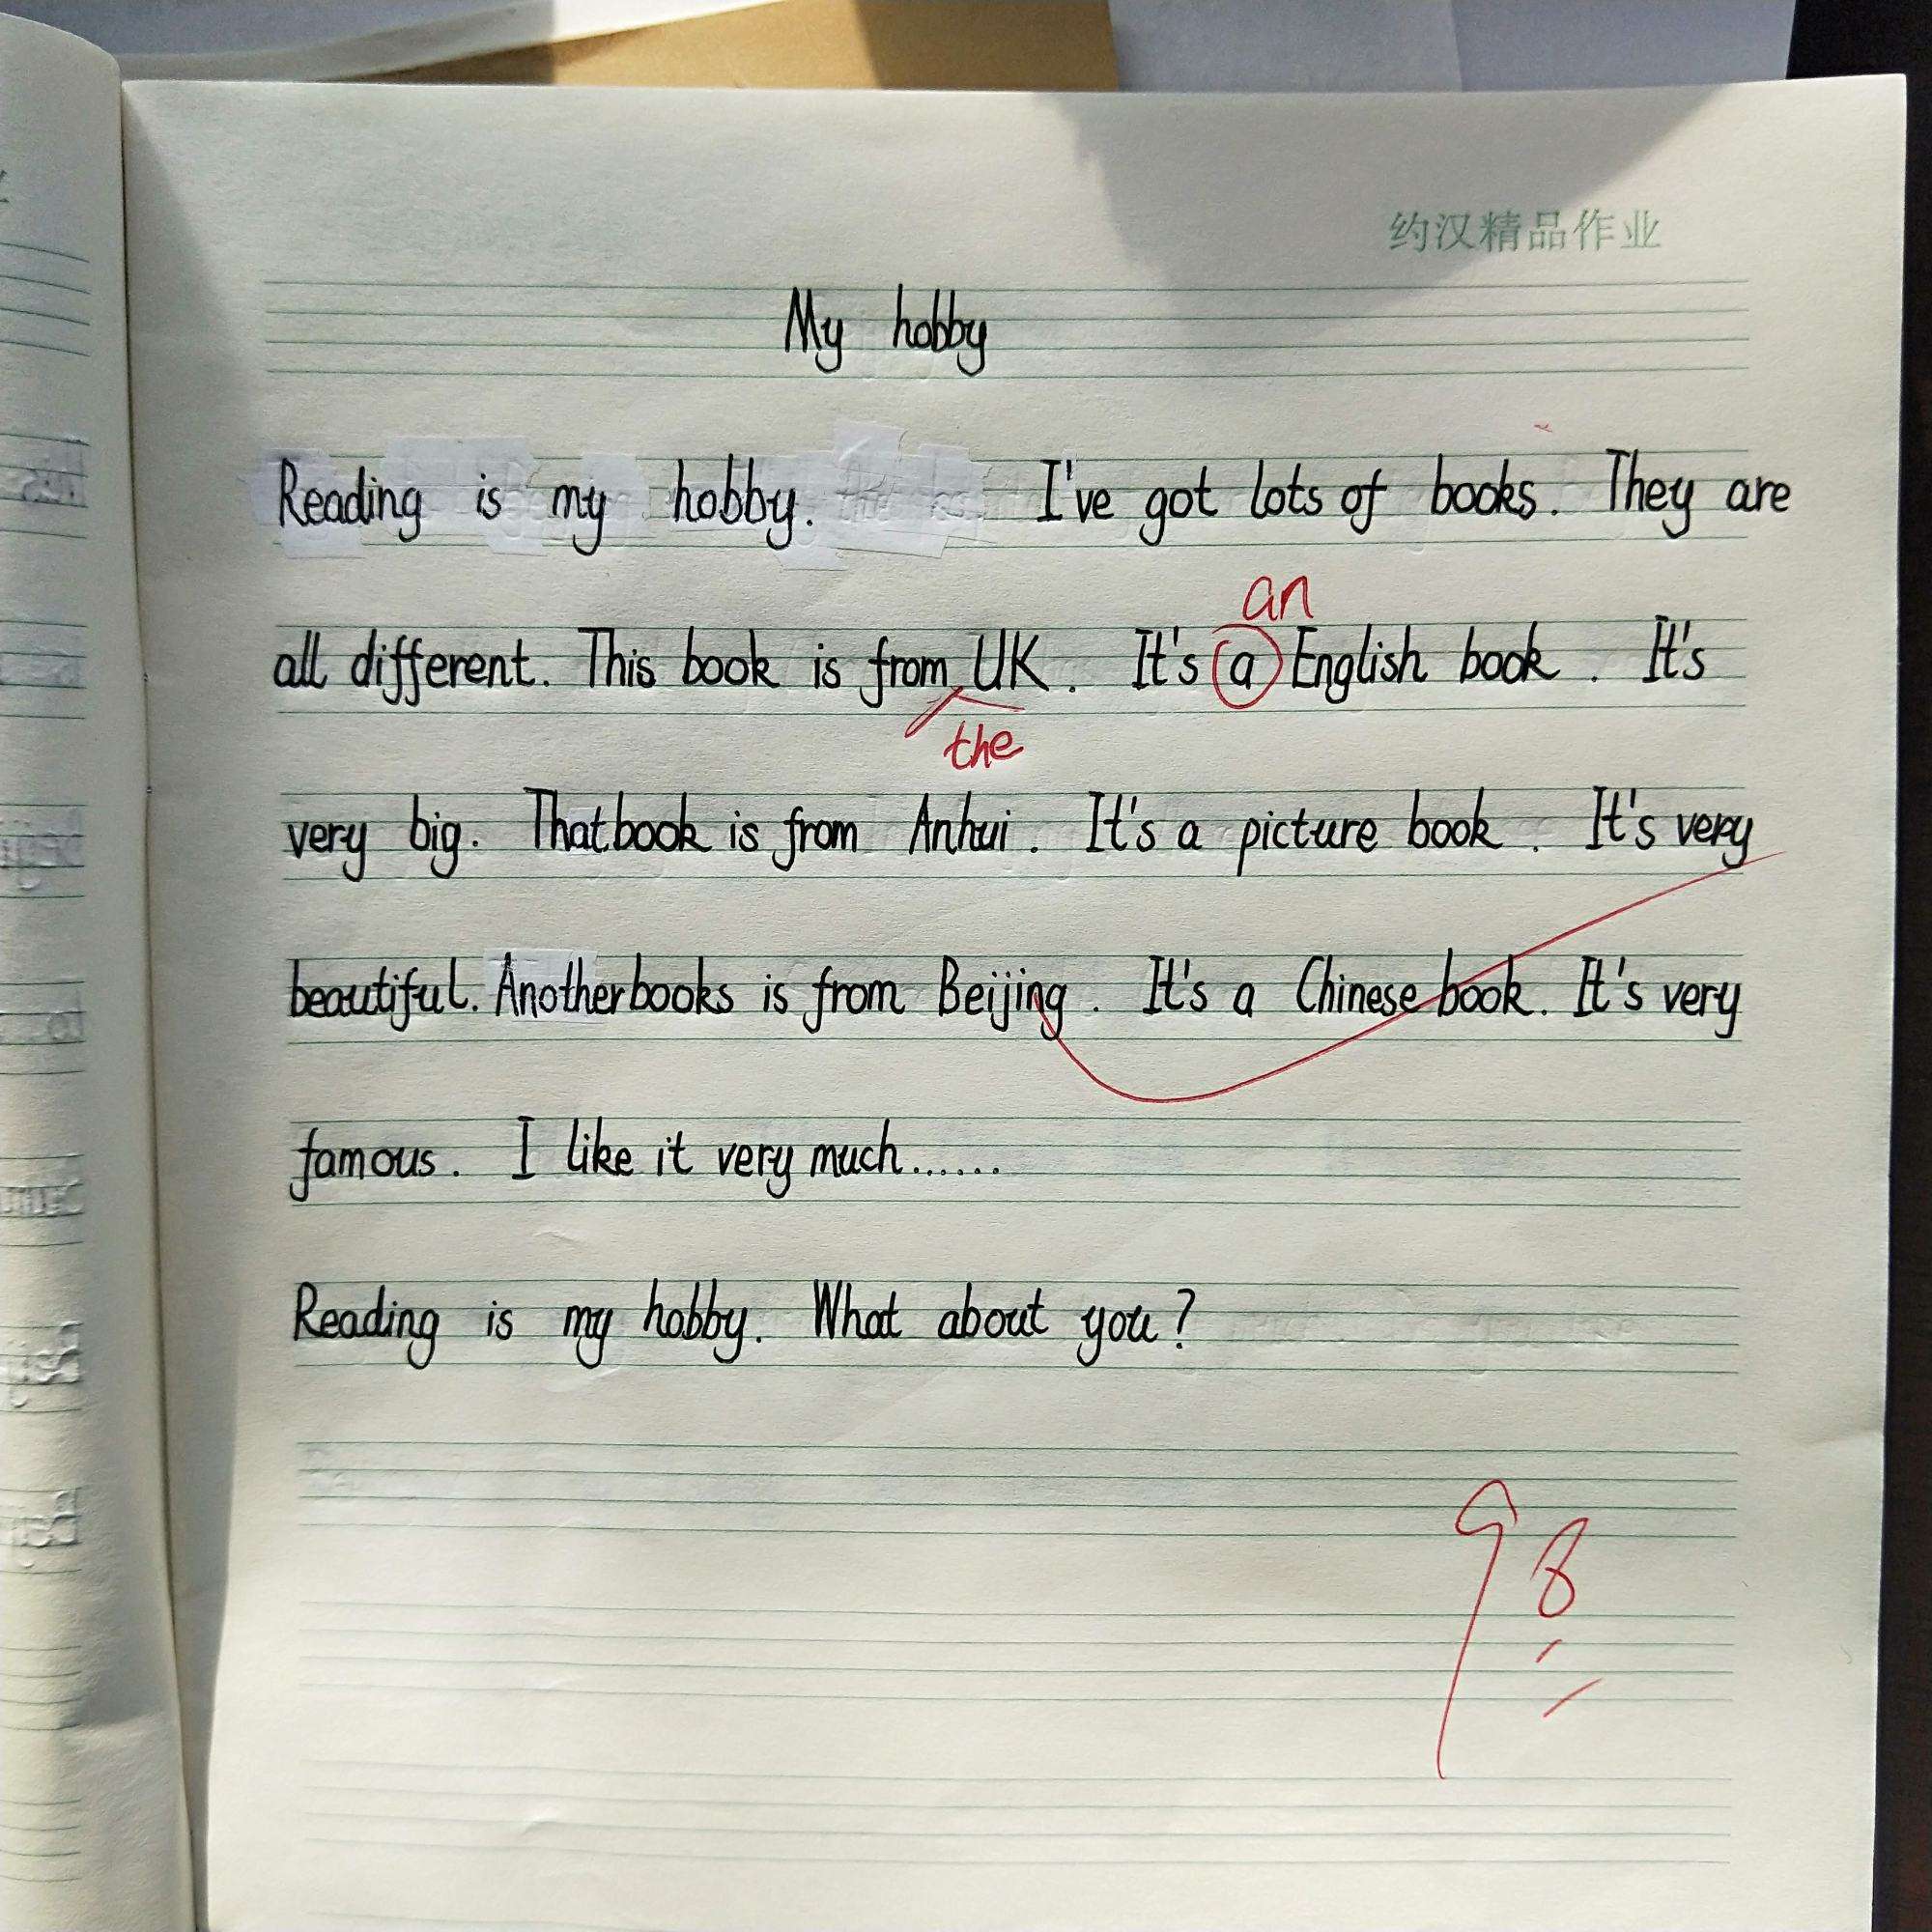 约汉精品作业
My hobby
Reading is my hobby. I've got lots of books. They are
an
all different. This book is from UK. It's a English book. It's
the
very big. That book is from Anhui. It's a picture book. It's very
beautiful. Another books is from Beijing. It's a Chinese book. It's very
famous. I like it very much......
Reading is my hobby. What about you?
98